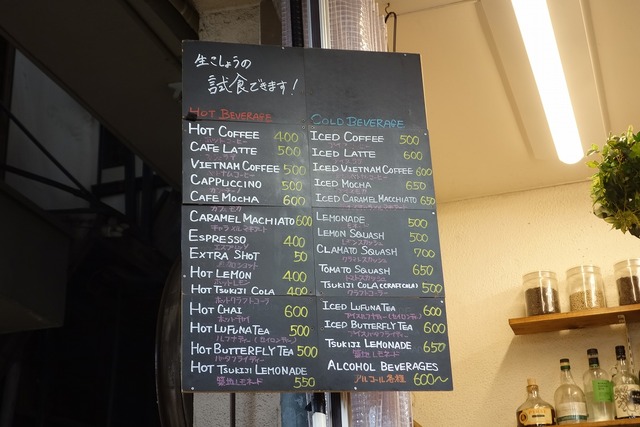 生こしょうの
試食できます!
HOT BEVERAGE
HOT COFFEE 400
ホットコーヒー
CAFE LATTE 500
カフェラテ
VIETNAM COFFEE 500
ベトナムコーヒー
CAPPUCCINO 500
カプチーノ
CAFE MOCHA 600
カフェモカ
CARAMEL MACHIATO 600
キャラメルマキアート
ESPRESSO 400
エスプレッソ
EXTRA SHOT 50
エクストラショット
HOT LEMON 400
ホットレモン
HOT TSUKIJI COLA 400
ホットクラフトコーラ
HOT CHAI 600
ホットチャイ
HOT LUFUNA TEA 500
ルフナティー(セイロンティー)
HOT BUTTERFLY TEA 500
バタフライティー
HOT TSUKIJI LEMONADE
築地レモネード 550
COLD BEVERAGE
ICED COFFEE 500
ICED LATTE 600
ICED VIETNAM COFFEE 600
ICED MOCHA 650
ICED CARAMEL MACCHIATO 650
LEMONADE 500
LEMON SQUASH 500
レモンスカッシュ
CLAMATO SQUASH 700
クラマトスカッシュ
TOMATO SQUASH 650
トマトスカッシュ
TSUKIJI COLA (CRAFTCOLA) 500
クラフトコーラ
ICED LUFUNA TEA 600
アイスルフナティー(セイロンティー)
ICED BUTTERFLY TEA 600
アイスバタフライティー
TSUKIJI LEMONADE 650
築地レモネード
ALCOHOL BEVERAGES
アルコール各種 600〜